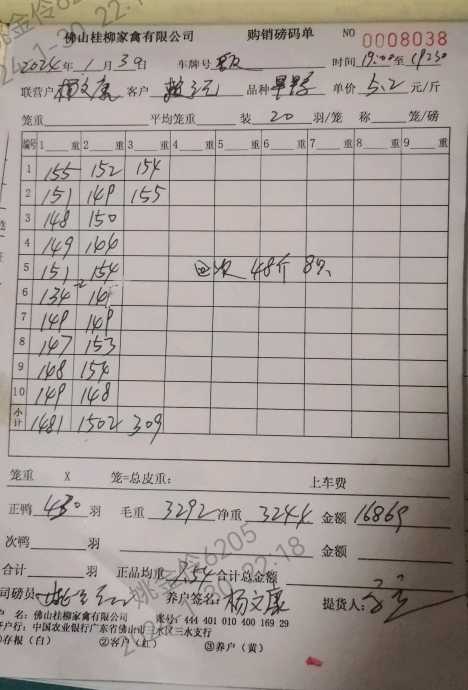 佛山桂柳家禽有限公司 购销磅码单 NO 0008038
2024年1月30日 车牌号 时间19:00至19:30
联营户 杨文康 客户 品种 单价5.2元/斤
笼重 平均笼重 装20羽/笼 称 笼/磅
编号 1 重 2 重 3 重 4 重 5 重 6 重 7 重 8 重 9 重
1 155 152 154
2 151 149 155
3 148 150
4 149
5 151 154 48斤
6 134
7 149 149
8 147 153
9 148 154
10 149 148
小计 1481 1502 309
笼重 X 笼=总皮重: 上车费
正鸭430羽 毛重3292净重3244 金额16869
次鸭 羽 金额
合计 羽 正品均重7.54合计总金额
司磅员: 养户签名: 杨文康 提货人:
户 名: 佛山桂柳家禽有限公司 账号: 444 401 010 400 169 29
开户行: 中国农业银行广东省佛山市三水区三水支行
①存根(白) ②客户(红) ③养户(黄)
姚金伶6205
22:18